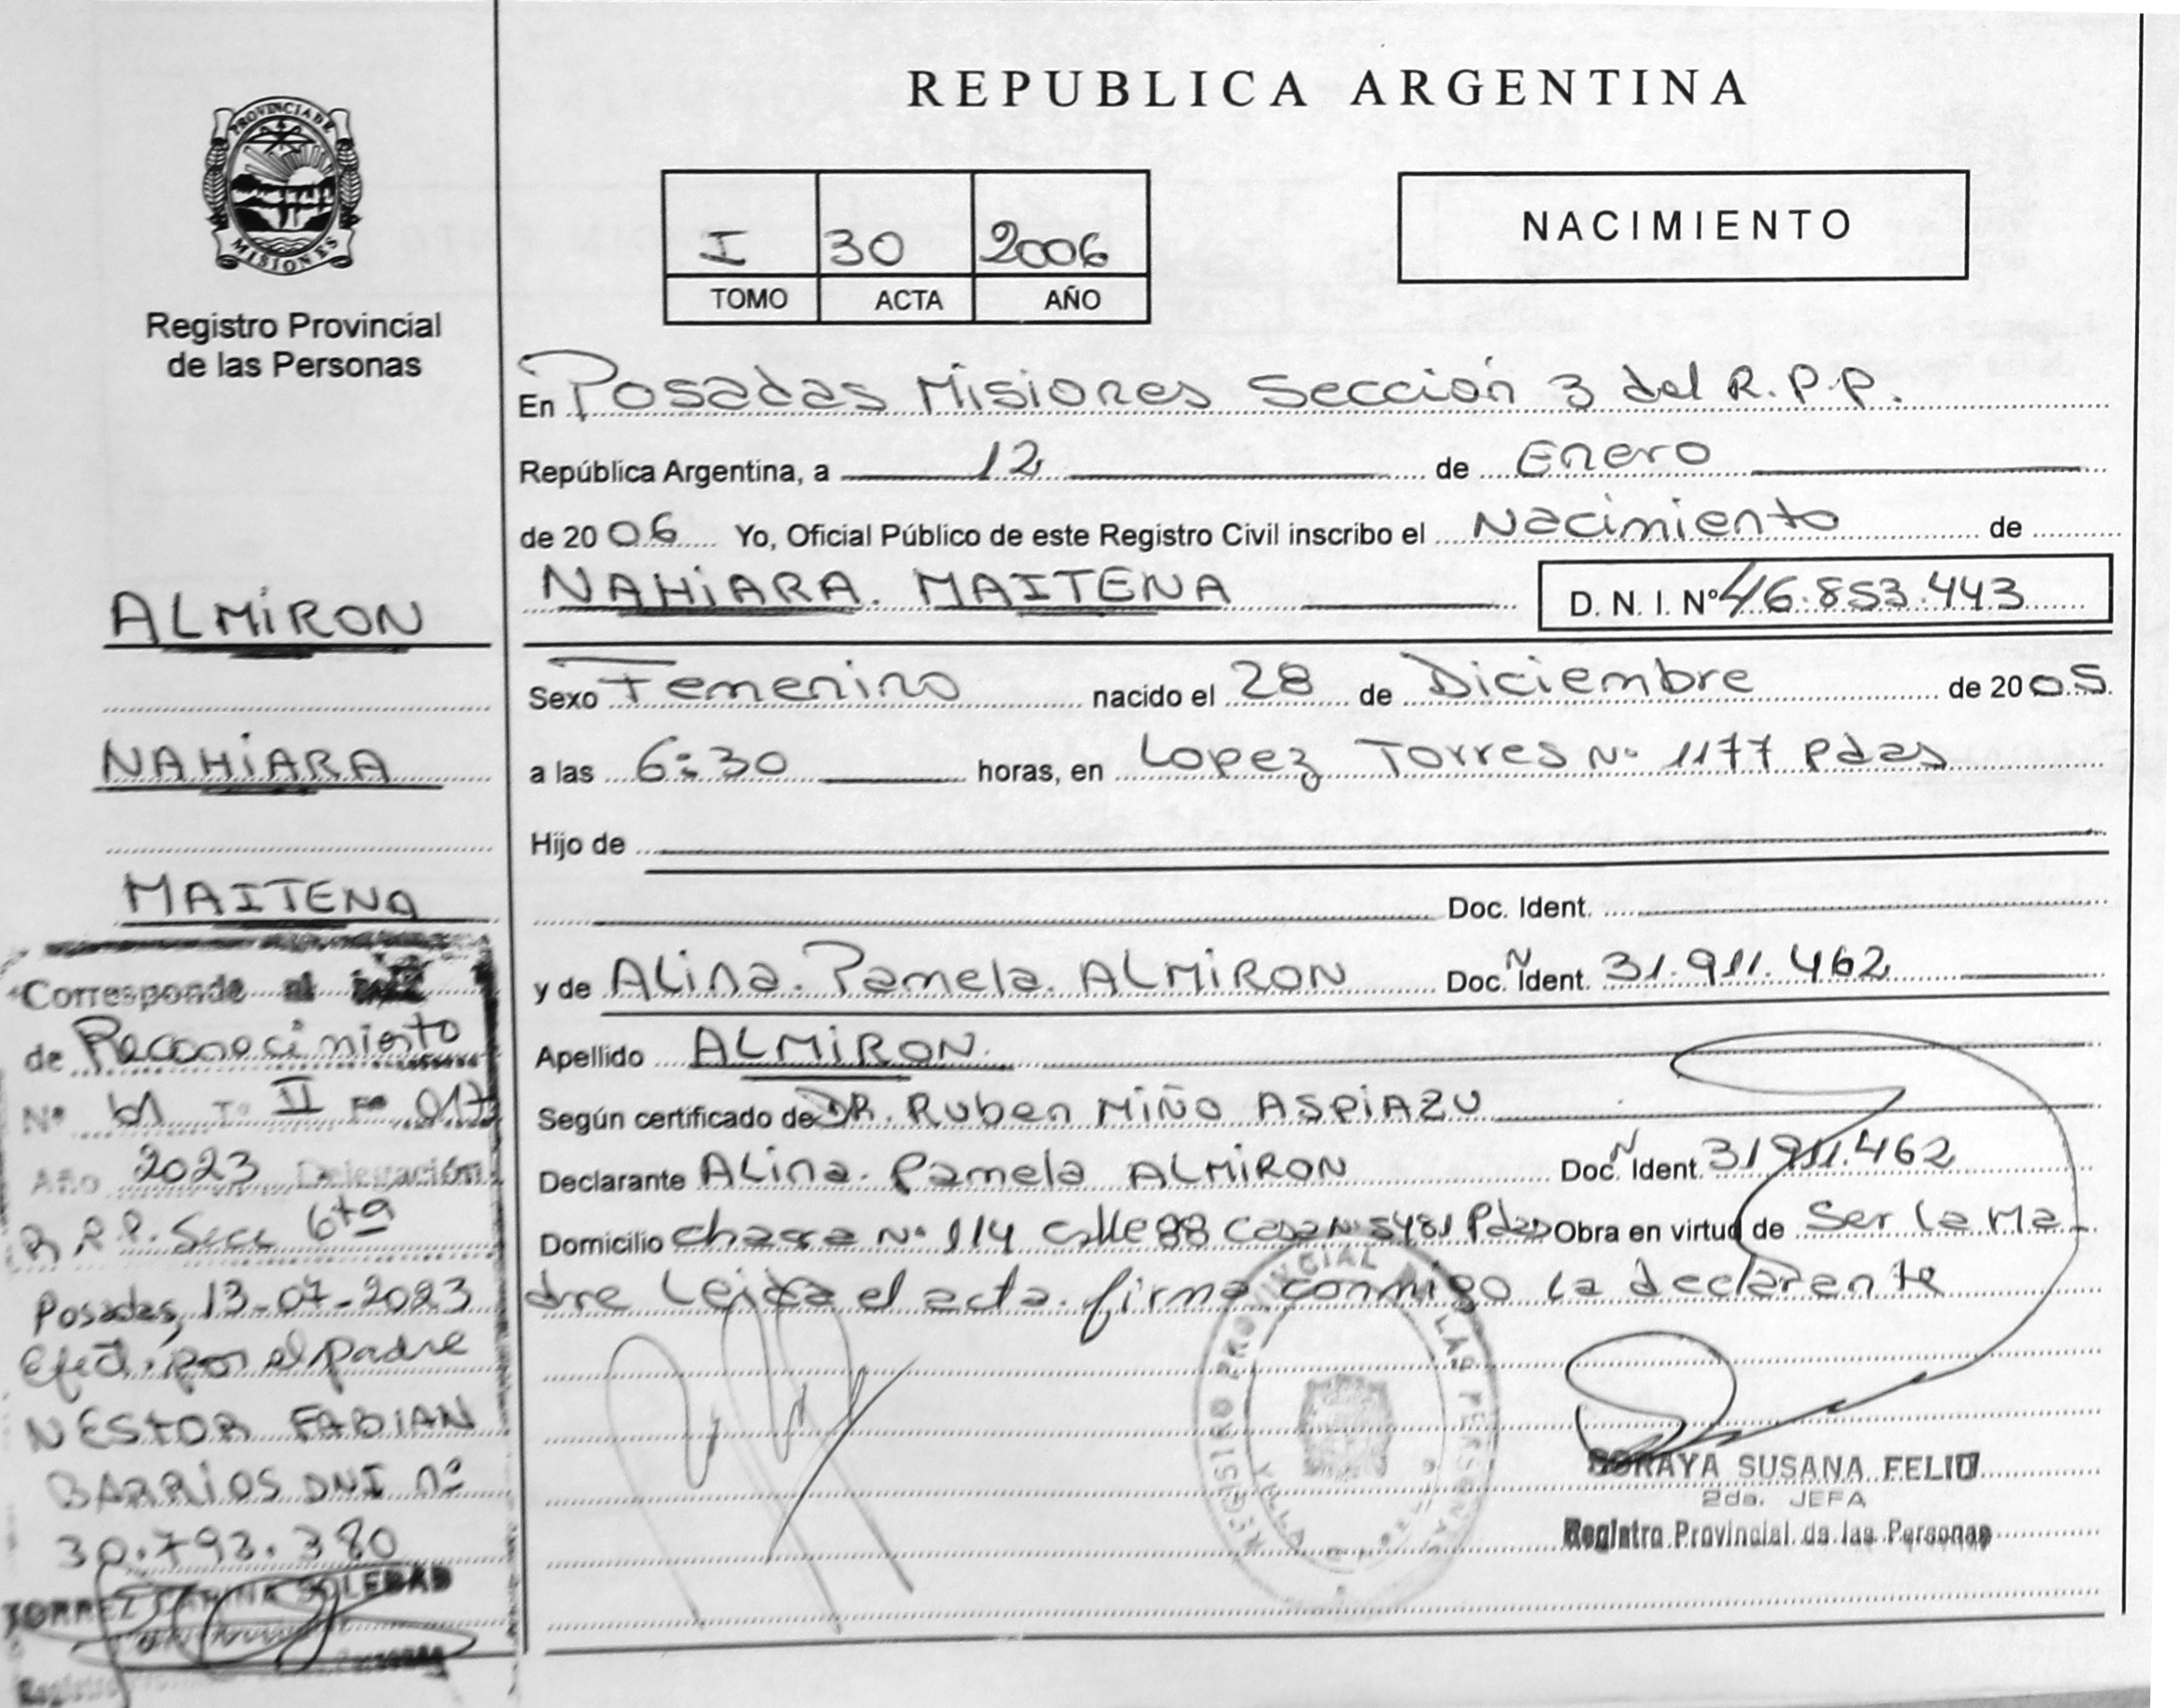 REPUBLICA ARGENTINA
PROVINCIA DE
MISIONES
Registro Provincial
de las Personas
I 30 2006
TOMO ACTA AÑO
NACIMIENTO
En Posadas Misiones Sección 3 del R.P.P.
República Argentina, a 12 de Enero
de 2006 Yo, Oficial Público de este Registro Civil inscribo el Nacimiento de
NAHIARA. MAITENA D.N.I. Nº 46.853.443
Sexo Femenino nacido el 28 de Diciembre de 2005.
a las 6:30 horas, en Lopez Torres Nº 1177 Pdas
Hijo de
Doc. Ident.
y de Alina. Pamela. ALMIRON Doc. N Ident. 31.911.462
Apellido ALMIRON.
Según certificado de DR. Ruben MIÑO ASPIAZU
Declarante ALina. Pamela ALMIRON Doc. N Ident. 31911.462
Domicilio chacra Nº 114 calle 88 Casa Nº 5481 Pdas Obra en virtud de Ser la Ma
dre Leida el acta. firma conmigo la declarante
REGISTRO PROVINCIAL DE LAS PERSONAS
SORAYA SUSANA FELIU
2da. JEFA
Registro Provincial de las Personas
ALMIRON
NAHIARA
MAITENA
Corresponde al
de Reconocimiento
Nº 61 Tº II Fº 017
Año 2023 Delegación
R.R.P. Secc 6ta
Posadas, 13-07-2023
Efect. por el padre
NESTOR FABIAN
BARRIOS DNI nº
30.793.380
SOLEDAD
Registro